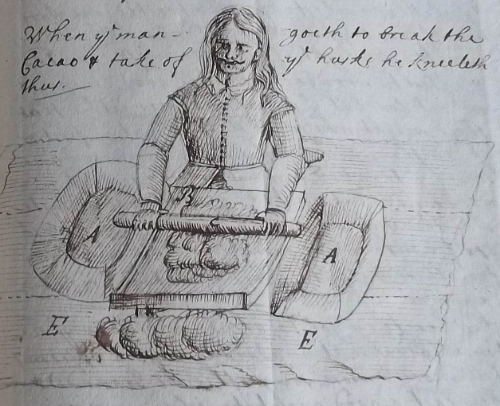 When yᵉ man - goeth to break the
Cacao & take of yᵉ husks he kneeleth
thus.
B
A A
E E